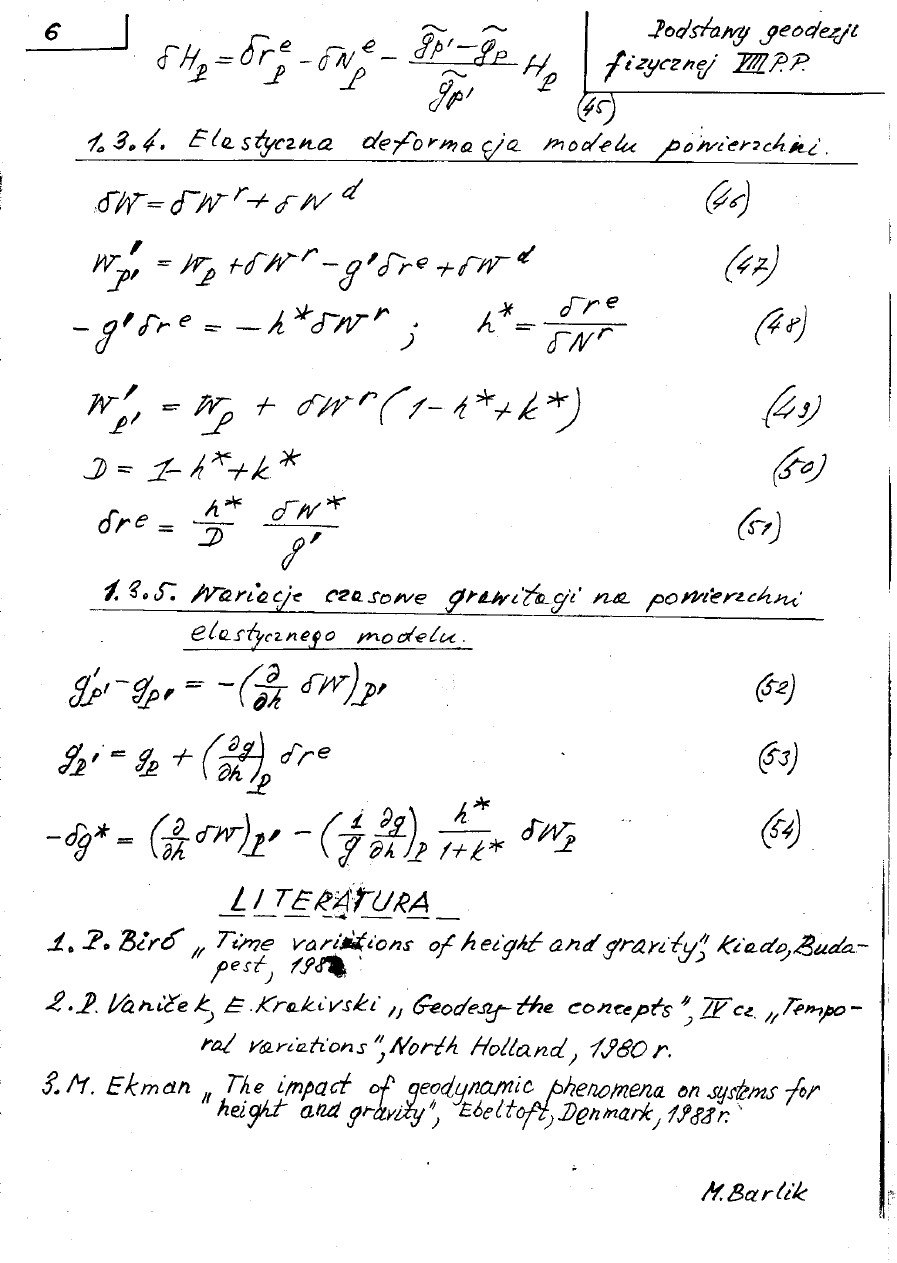 6
Podstawy geodezji
fizycznej VIII P.P.
δH_P = δr^e_P - δN^e_P - (g̃_P' - g̃_P)/g̃_P' H_P (45)
1.3.4. Elastyczna deformacja modelu powierzchni.
δW = δW^r + δW^d (46)
W'_P' = W_P + δW^r - g'δr^e + δW^d (47)
- g'δr^e = - h*δW^r ; h* = δr^e/δN^r (48)
W'_P' = W_P + δW^r(1 - h* + k*) (49)
D = 1 - h* + k* (50)
δr^e = h*/D δW*/g' (51)
1.3.5. Wariacje czasowe grawitacji na powierzchni
elastycznego modelu.
g'_P' - g_P' = -(∂/∂h δW)_P' (52)
g_P' = g_P + (∂g/∂h)_P δr^e (53)
-δg* = (∂/∂h δW)_P' - (1/g ∂g/∂h)_P h*/(1+k*) δW_P (54)
LITERATURA
1. P. Biró „Time variations of height and gravity", Kiado, Buda-
pest,
2. P. Vaniček, E. Krakivski „Geodesy the concepts", IV cz. „Tempo-
ral variations", North Holland, 1980 r.
3. M. Ekman „The impact of geodynamic phenomena on systems for
height and gravity", Ebeltoft, Denmark, 1988 r.
M. Barlik